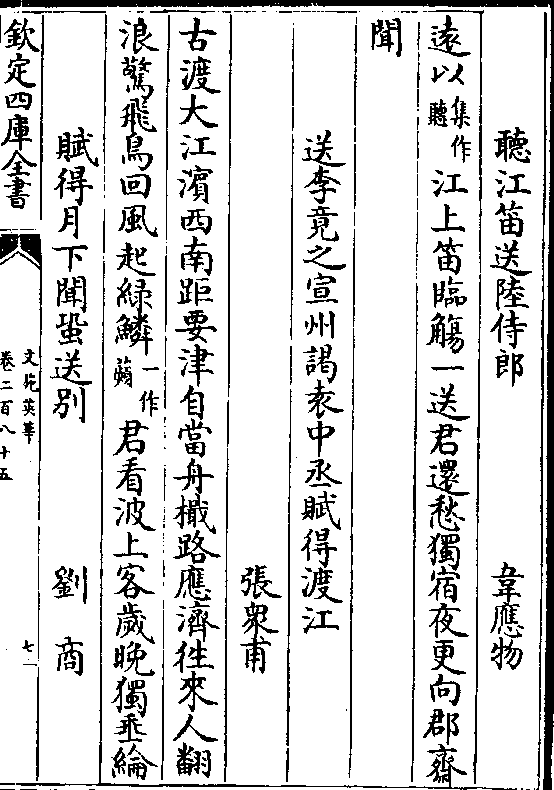 聽江笛送陸侍郎 韋應物
遠以集作聽江上笛臨觴一送君還愁獨宿夜更向郡齋
聞
送李竟之宣州謁袁中丞賦得渡江
張衆甫
古渡大江濵西南距要津自當舟檝路應濟徃來人翻
浪驚飛鳥回風起緑鱗一作蘋君看波上客歲晩獨垂綸
賦得月下聞蛩送别 劉商
欽定四庫全書
文苑英華
卷二百八十五
七